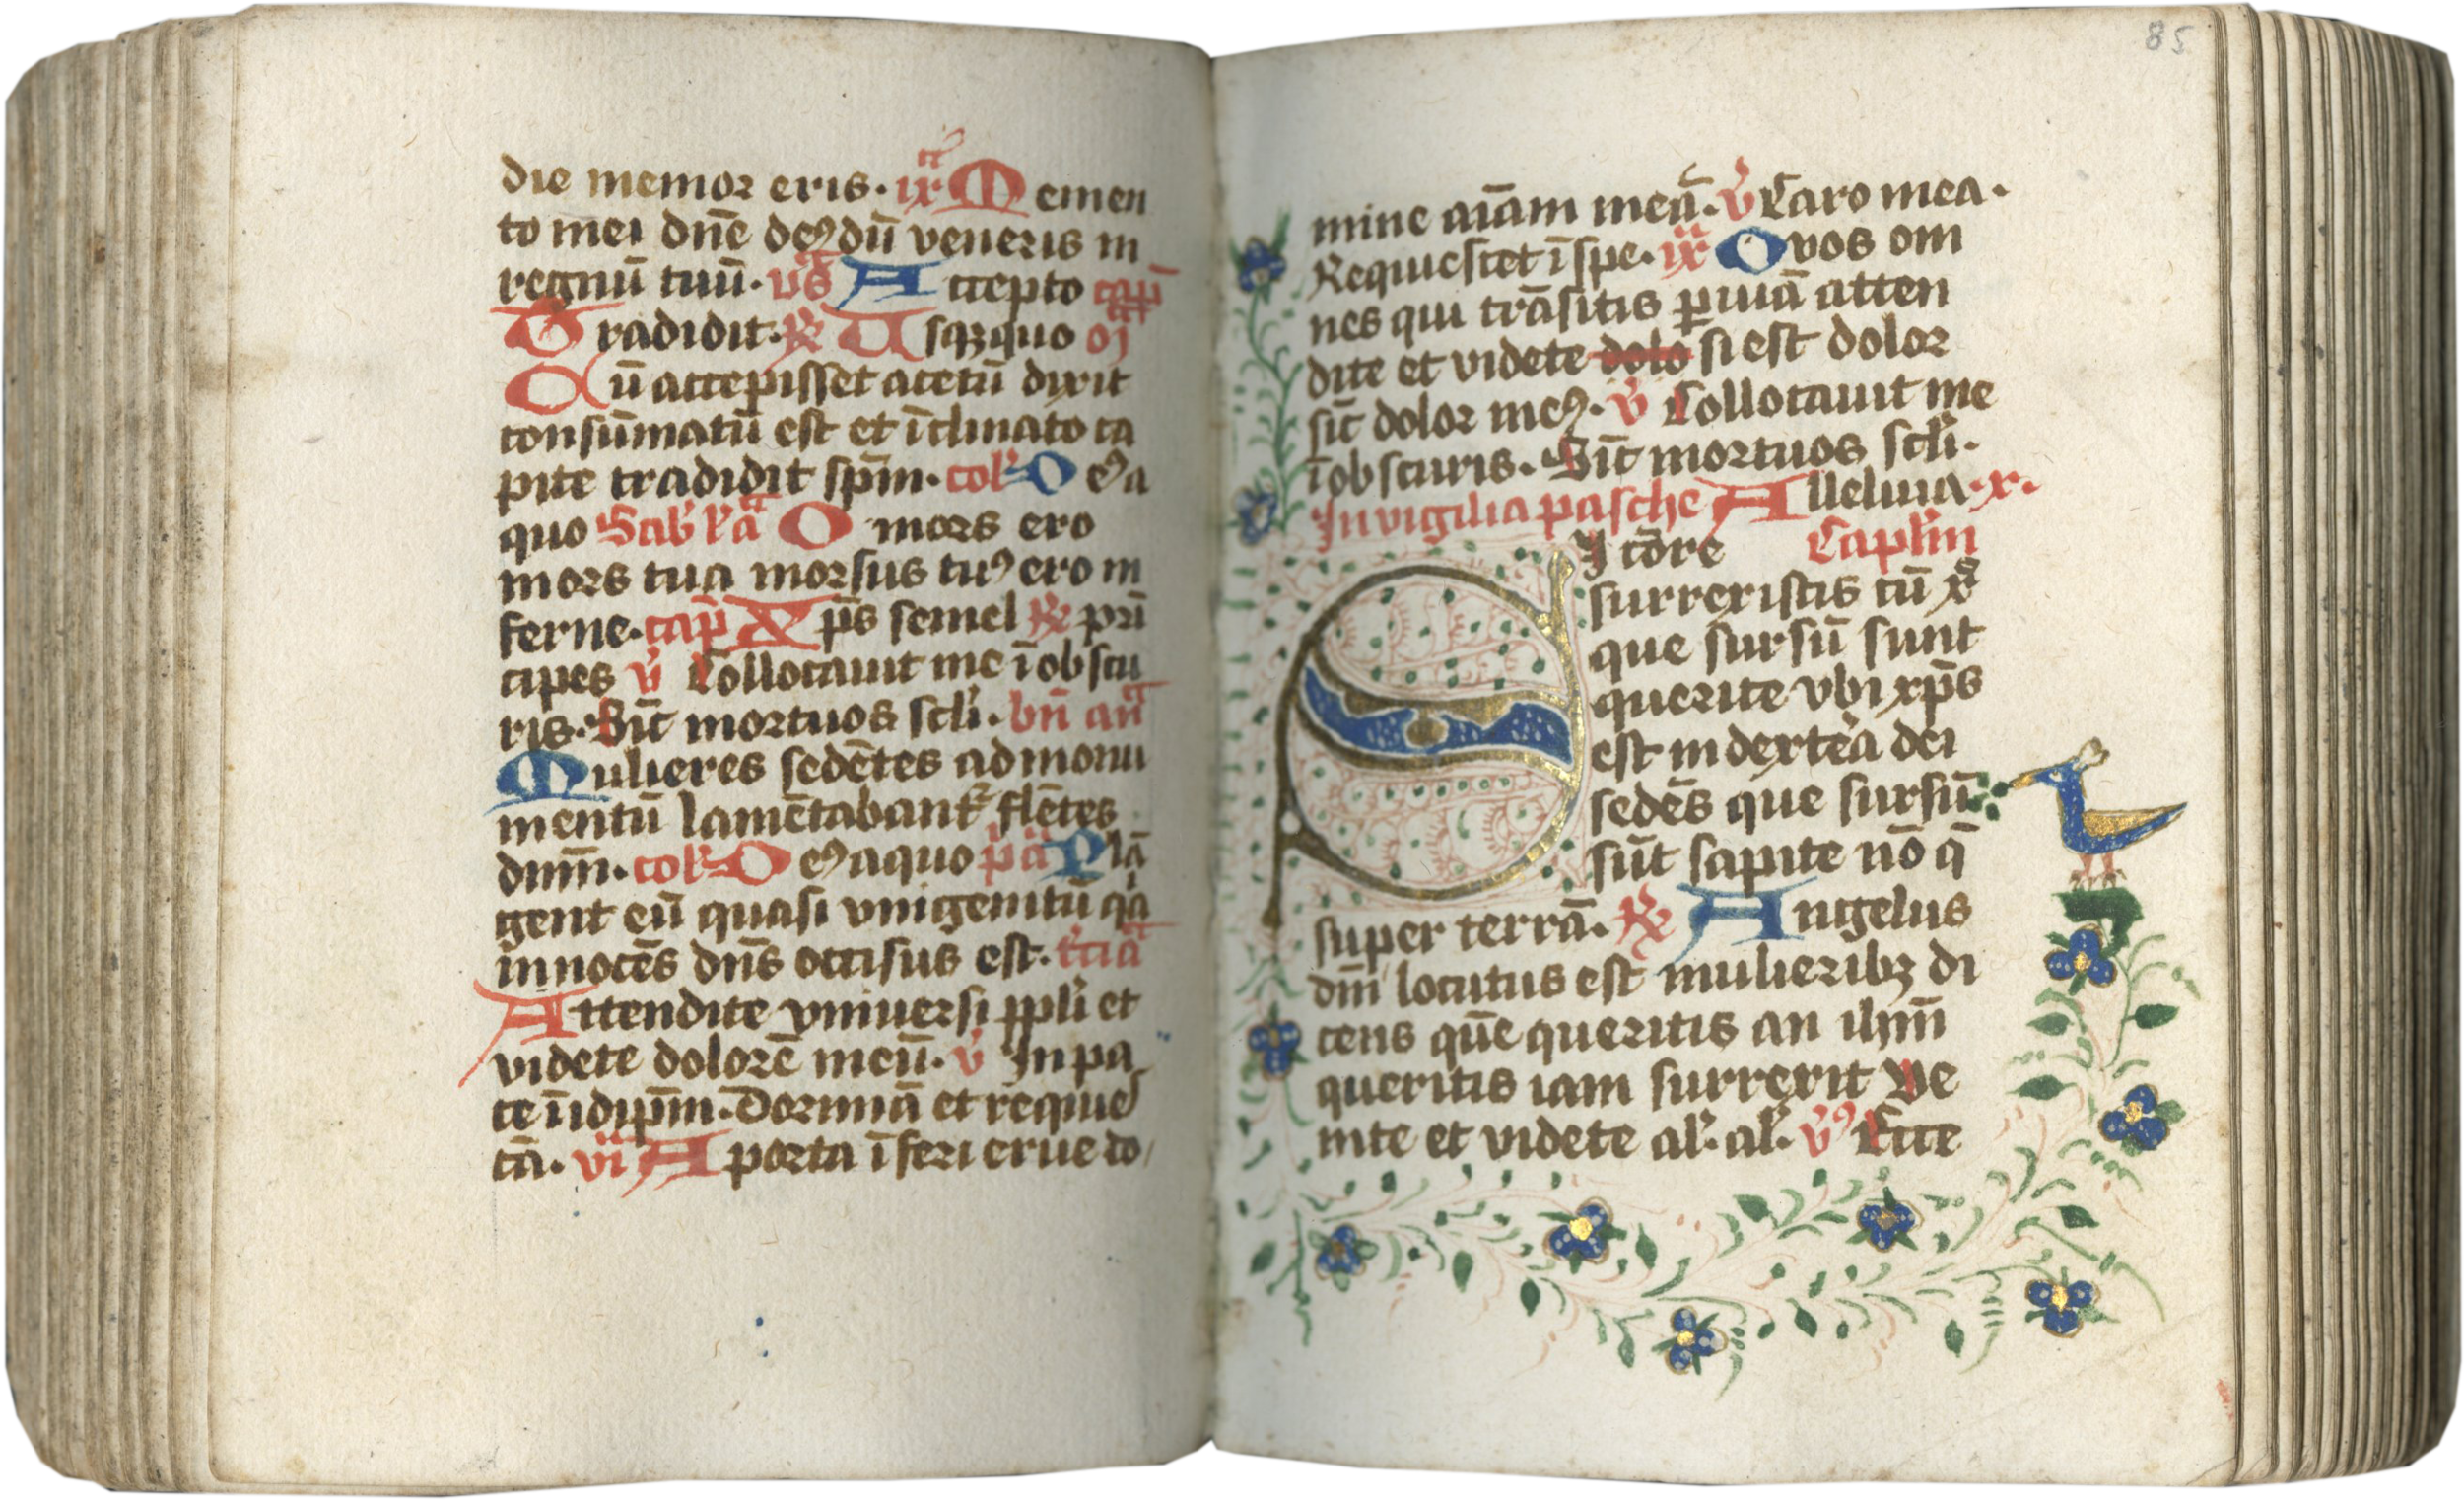 die memor eris. ix a Memen
to mei dn̄e deꝰ dū veneris in
regnū tuū. vs̄ Accepto cap̄
Tradidit. ℟ Usqꝫ quo oī
Cū accepisset acetū dixit
consūmatū est et īclinato ca
pite tradidit sp̄m. col' D eꝰ a
quo Sab' l'a O mors ero
mors tua morsus tuꝰ ero in
ferne. cap̄ Xp̄s semel ℟ prī
cipes v̄ Collocauit me ī obscu
ris. Sic̄ mortuos scl'i. bn̄ an̄
Mulieres sedētes ad monu
mentū lamētabant' flētes
dnm̄. col' D eꝰ a quo pa Plā
gent eū quasi vnigenitū qa
innocēs dn̄s occisus est. t'cia
Attendite vniuersi ppl'i et
videte dolorē meū. v̄ In pa
ce ī idip̄m. Dormiā et requies
cā. vi A porta īferi erue do
85
mine aīam meā. v̄ Caro mea.
Requiescet ī spe. ix O vos om
nes qui trāsitis ꝑ uiā atten
dite et videte dolo si est dolor
sic̄ dolor meꝰ. v̄ Collocauit me
ī obscuris. Sic̄ mortuos scl'i.
In vigilia pasche Alleluia. x.
SI cōre Capl'm
surrexistis cū xp̄o
que sursū sunt
querite vbi xp̄s
est in dextera dei
sedēs que sursū
sūt sapite nō q̄
super terrā. ℟ Angelus
dn̄i locutus est mulieribꝫ di
cens quē queritis an ihm̄
queritis iam surrexit Ve
nite et videte al'. al'. vꝰ Ecce